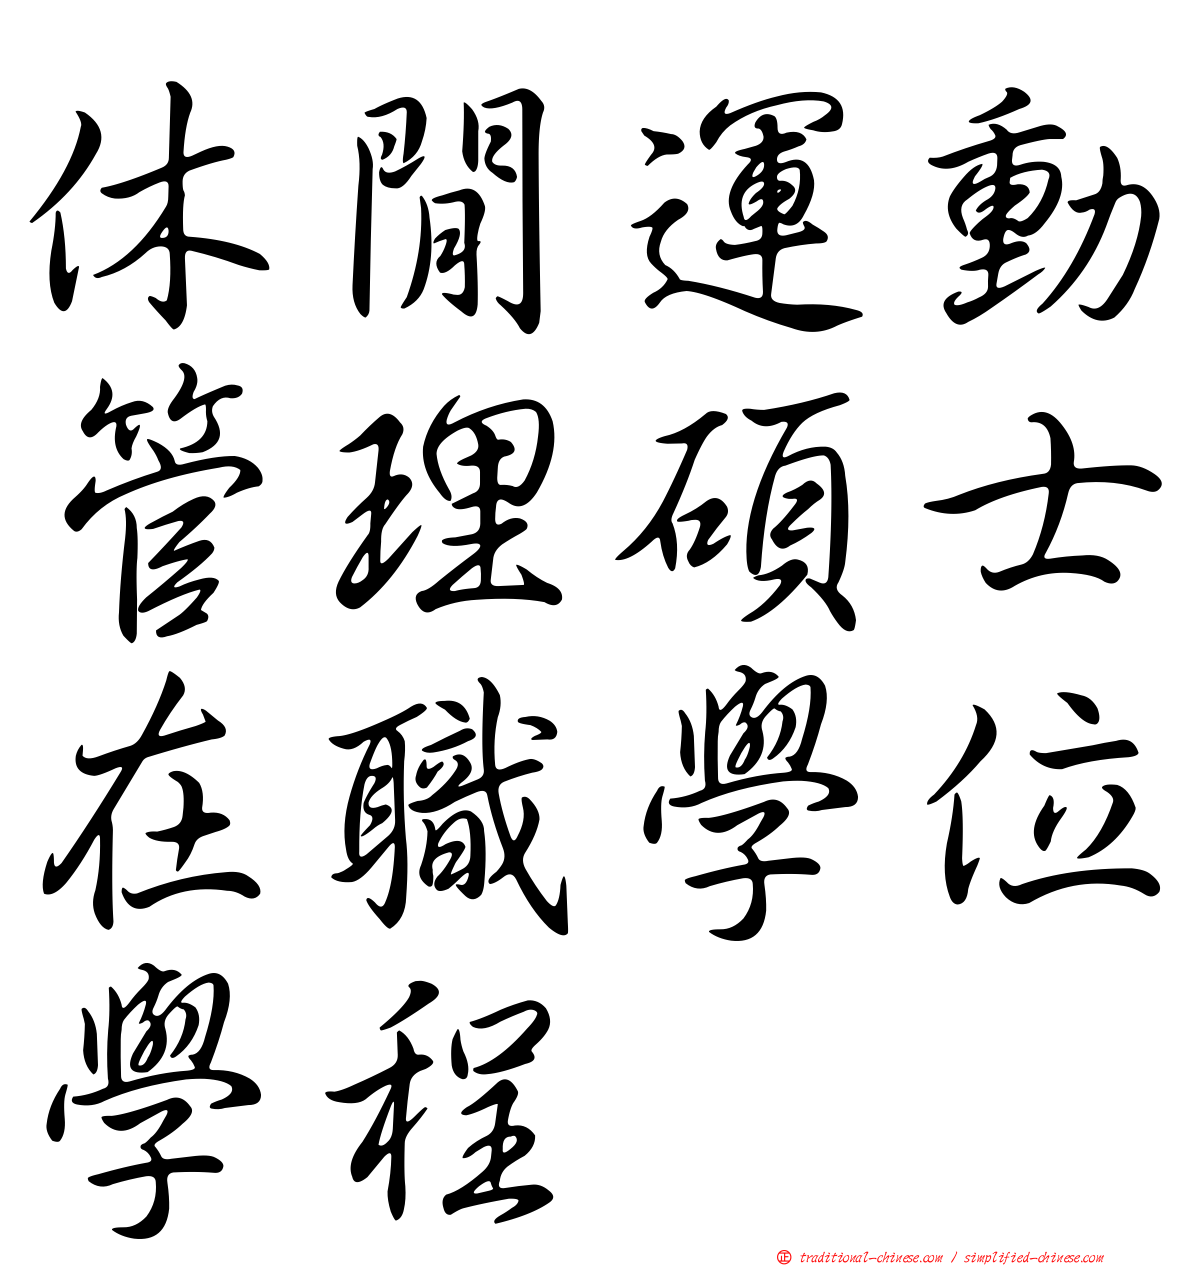 休閒運動
管理碩士
在職學位
學程
正 traditional-chinese.com / simplified-chinese.com